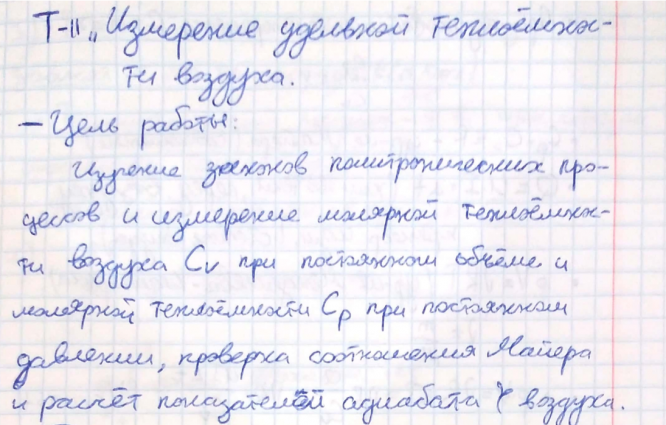 Т-11 „Измерение удельной теплоёмкос-
ти воздуха.
– Цель работы:
Изучение законов политропических про-
цессов и измерение молярной теплоёмкос-
ти воздуха Cv при постоянном объёме и
молярной теплоёмкости Cp при постоянном
давлении, проверка соотношения Майера
и расчёт показателей адиабата γ воздуха.